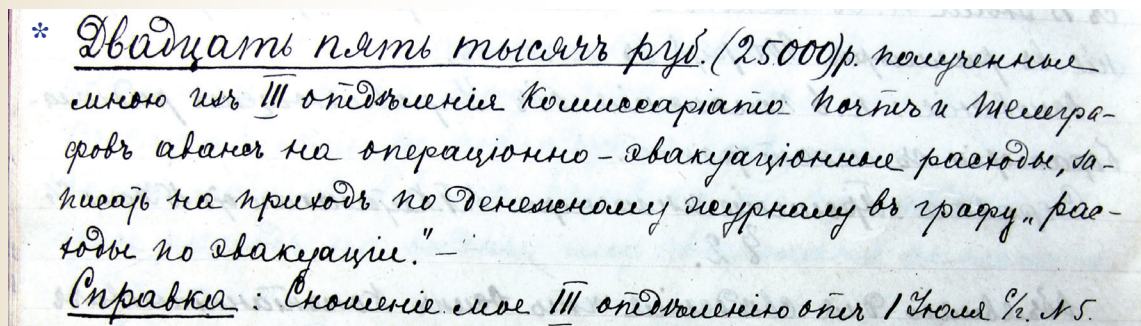 * Двадцать пять тысячъ руб. (25000) р. полученные
мною изъ III отдѣленія Комиссаріата Почтъ и Телегра-
фовъ авансъ на операціонно-эвакуаціонные расходы, за-
писать на приходъ по денежному журналу въ графу „рас-
ходы по эвакуаціи." —
Справка. Сношеніе мое III отдѣленію отъ 1 Іюля с/г. N 5.